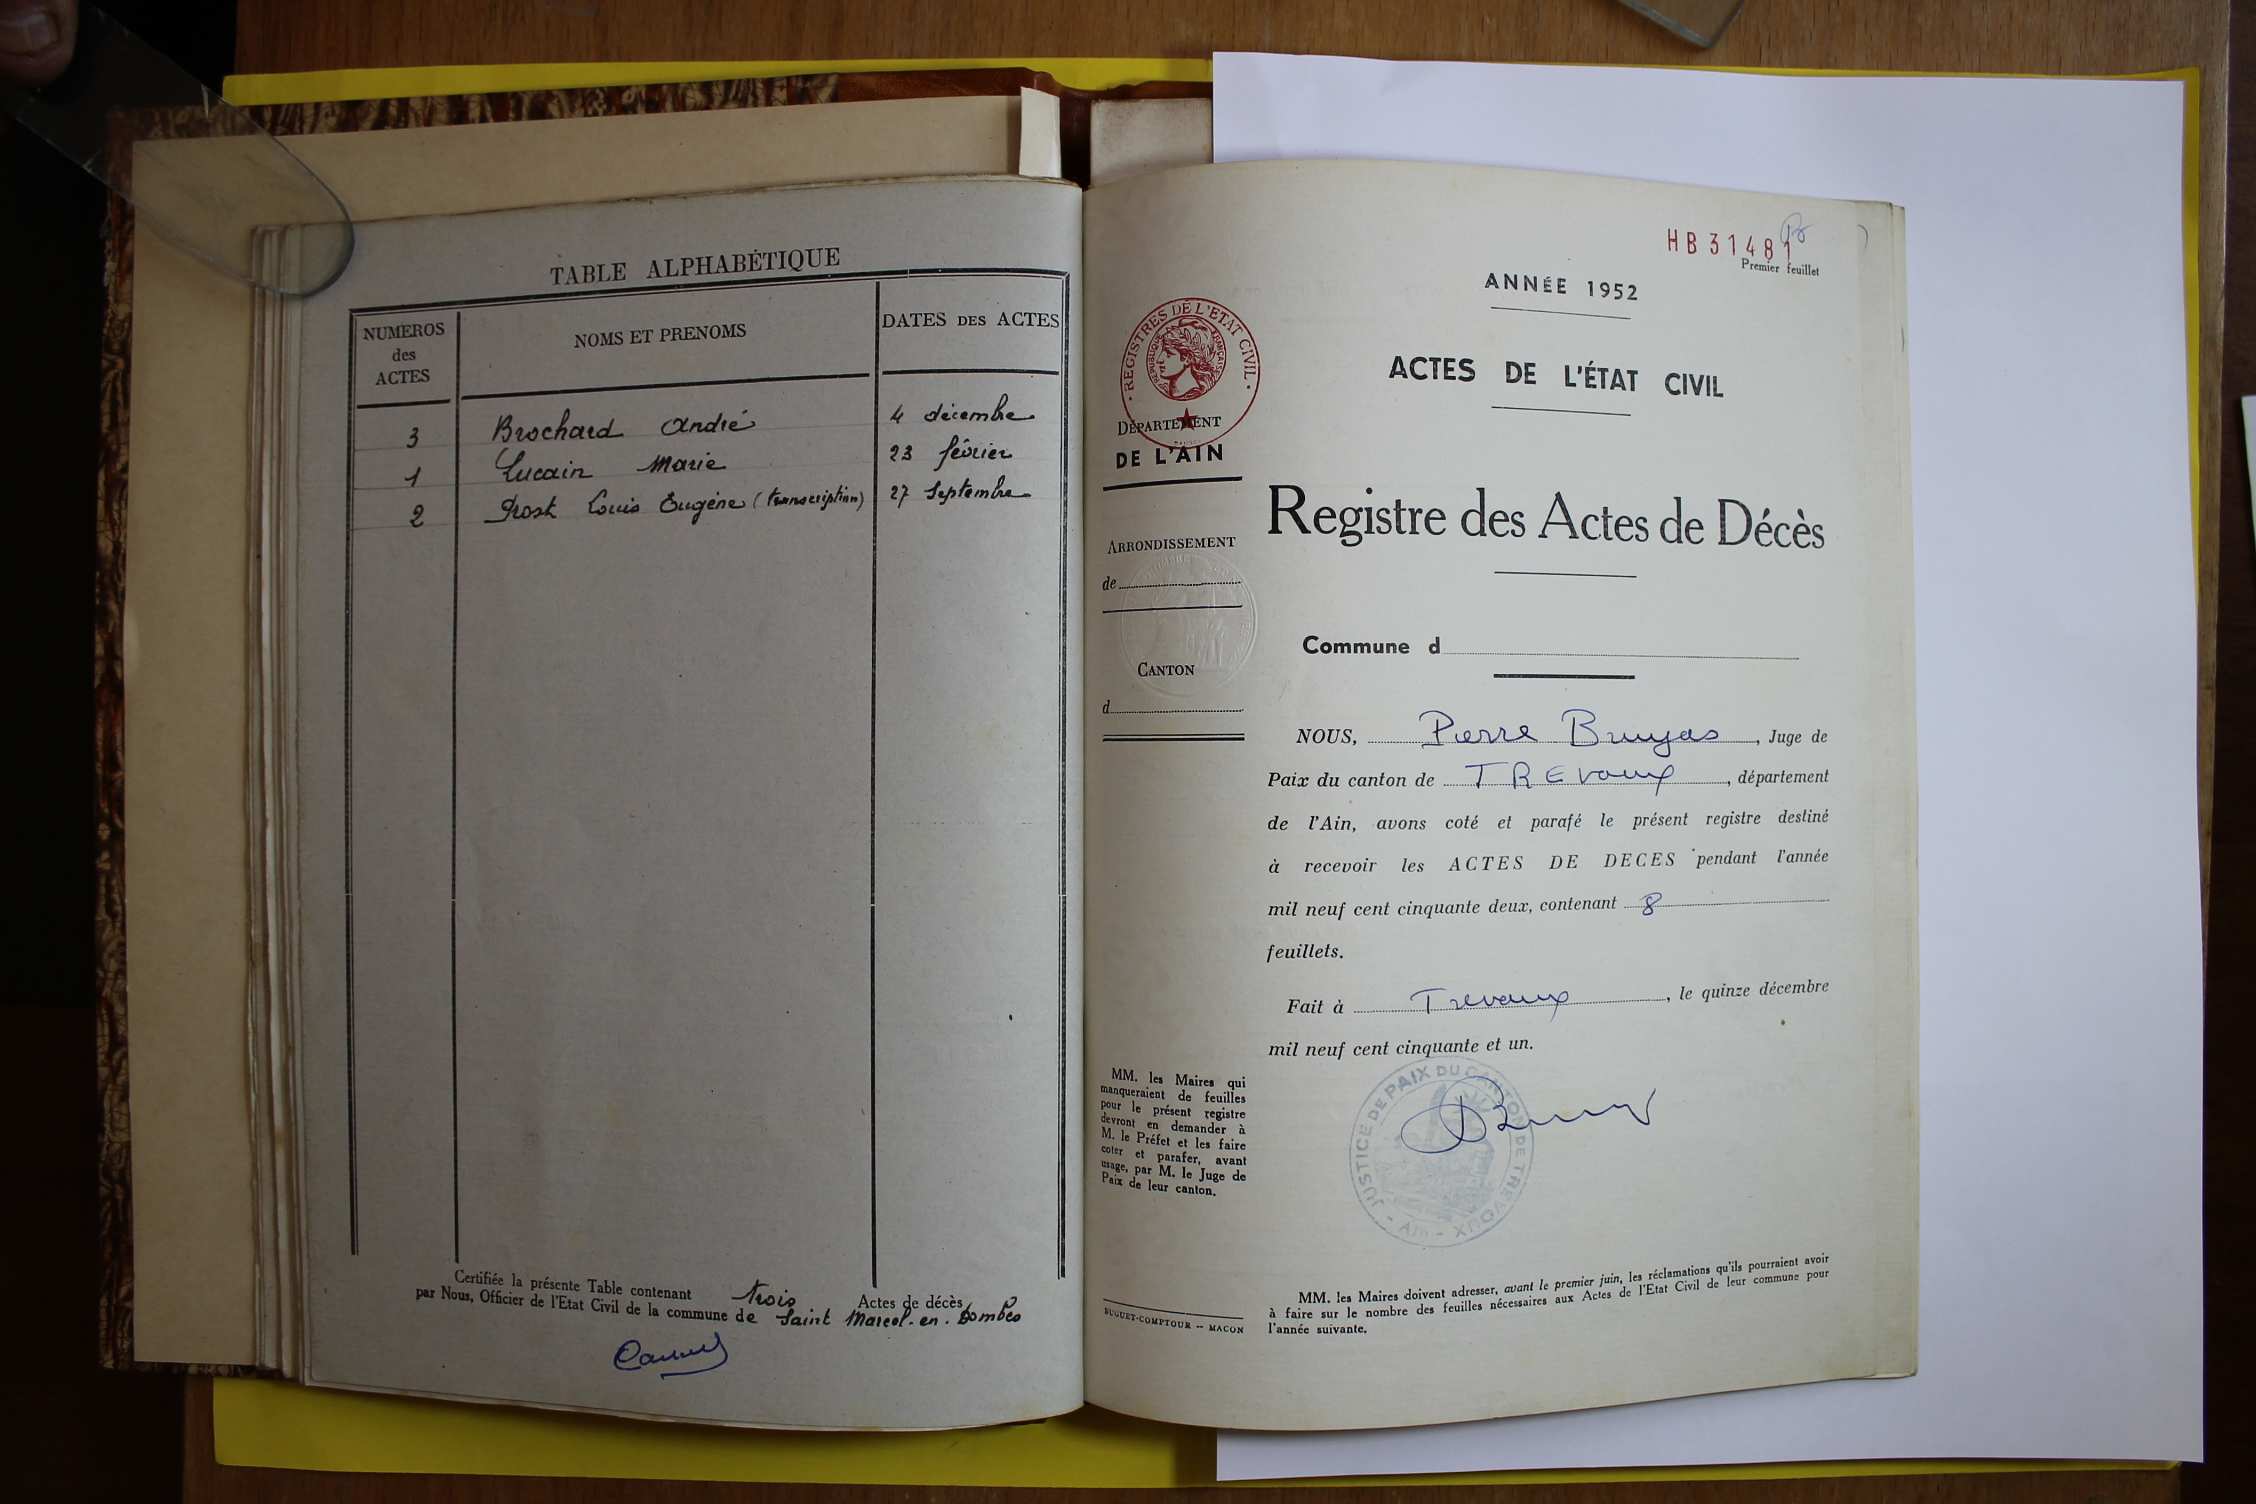 TABLE ALPHABÉTIQUE
NUMEROS
des
ACTES
NOMS ET PRENOMS
DATES DES ACTES
3 Brochard André 4 décembre
1 Lucain Marie 23 février
2 Prost Louis Eugène (transcription) 27 septembre
Certifiée la présente Table contenant trois Actes de décès,
par Nous, Officier de l'Etat Civil de la commune de Saint Marcel-en-Dombes
HB31481
Premier feuillet
ANNÉE 1952
ACTES DE L'ÉTAT CIVIL
REGISTRES DE L'ETAT CIVIL
REPUBLIQUE FRANÇAISE
DÉPARTEMENT
DE L'AIN
Registre des Actes de Décès
ARRONDISSEMENT
de
CANTON
d
Commune d
NOUS, Pierre Bruyas, Juge de
Paix du canton de TREvoux, département
de l'Ain, avons coté et parafé le présent registre destiné
à recevoir les ACTES DE DECES pendant l'année
mil neuf cent cinquante deux, contenant 8
feuillets.
Fait à Trevoux, le quinze décembre
mil neuf cent cinquante et un.
JUSTICE DE PAIX DU CANTON DE TREVOUX - AIN -
MM. les Maires qui
manqueraient de feuilles
pour le présent registre
devront en demander à
M. le Préfet et les faire
coter et parafer, avant
usage, par M. le Juge de
Paix de leur canton.
BUGUET-COMPTOUR -- MACON
MM. les Maires doivent adresser, avant le premier juin, les réclamations qu'ils pourraient avoir
à faire sur le nombre des feuilles nécessaires aux Actes de l'Etat Civil de leur commune pour
l'année suivante.